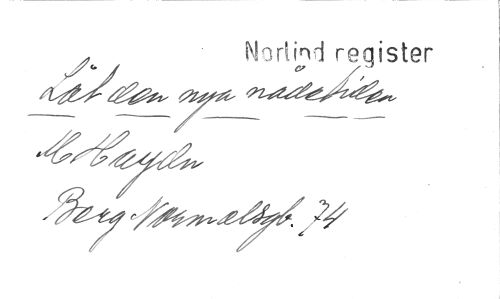 Norlind register
Låt den nya nådetiden
M Haydn
Berg Normalsgb. 74